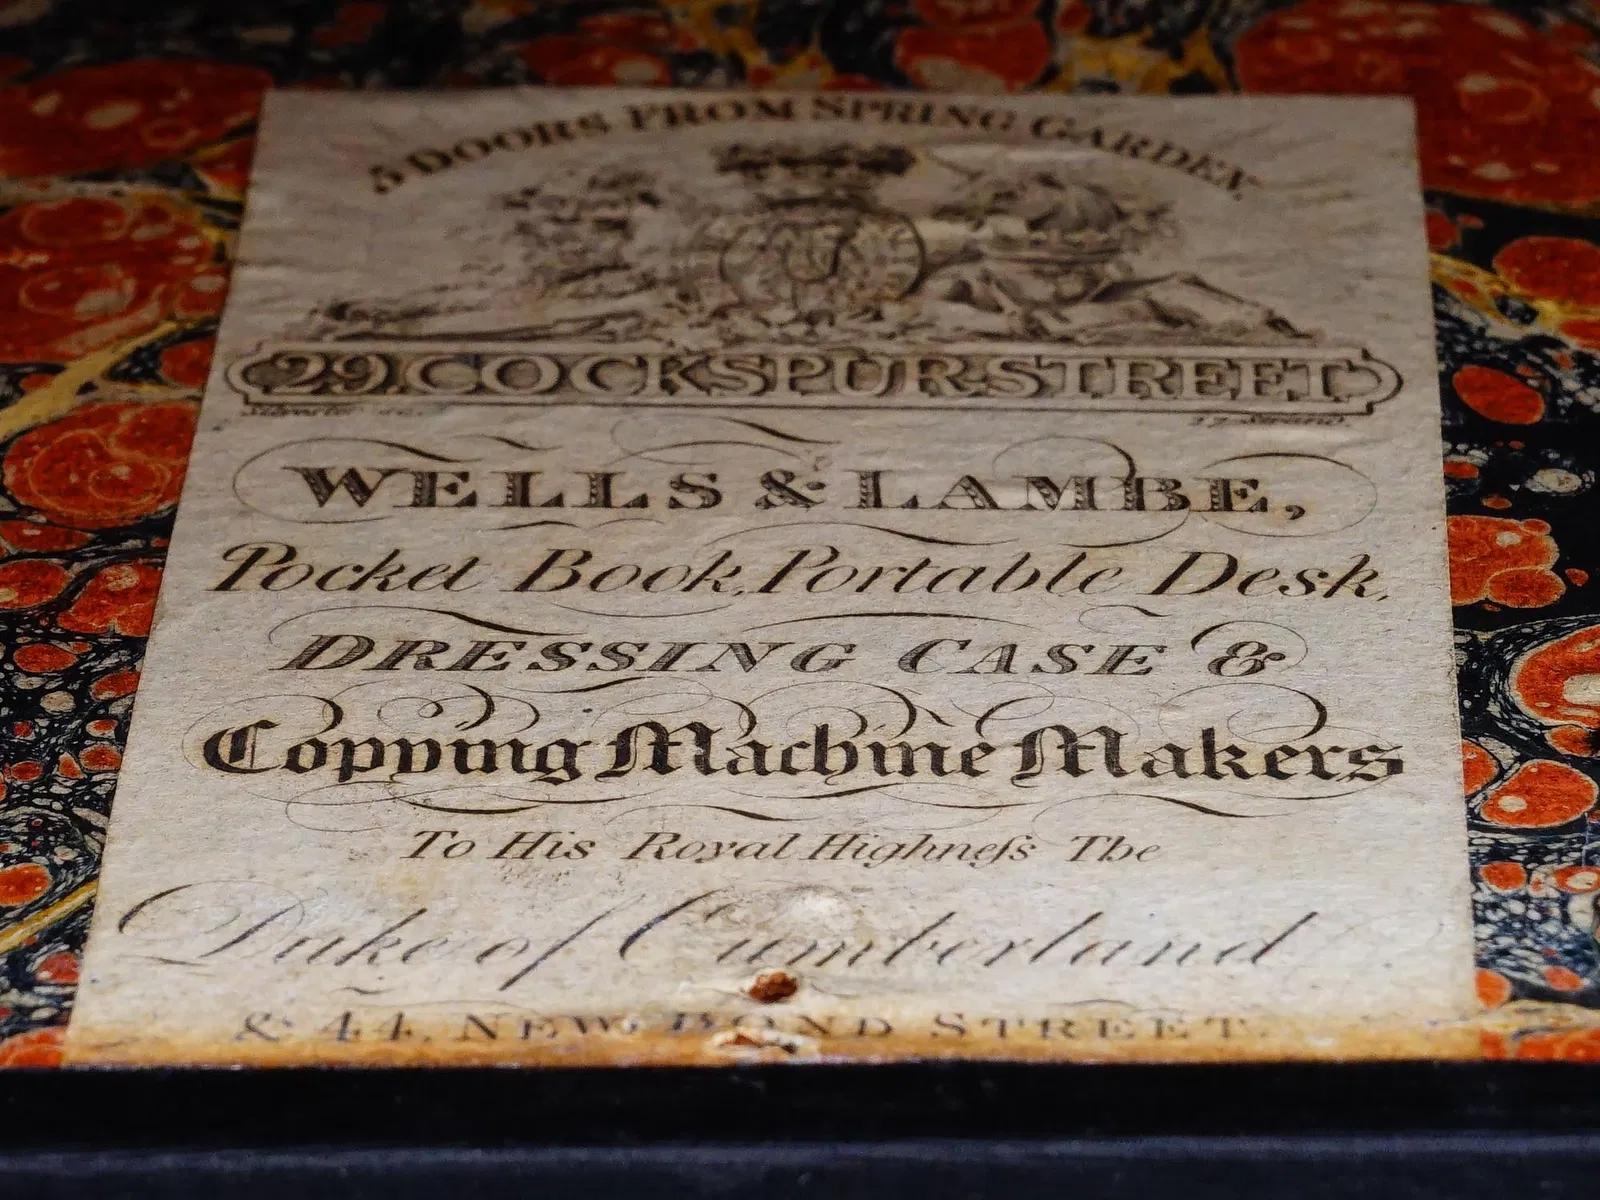 5 DOORS FROM SPRING GARDEN.
29. COCKSPUR STREET.
Silvester sc. 27 Strand.
WELLS & LAMBE,
Pocket Book, Portable Desk,
DRESSING CASE &
Copying Machine Makers
To His Royal Highneſs The
Duke of Cumberland
& 44, NEW BOND STREET.